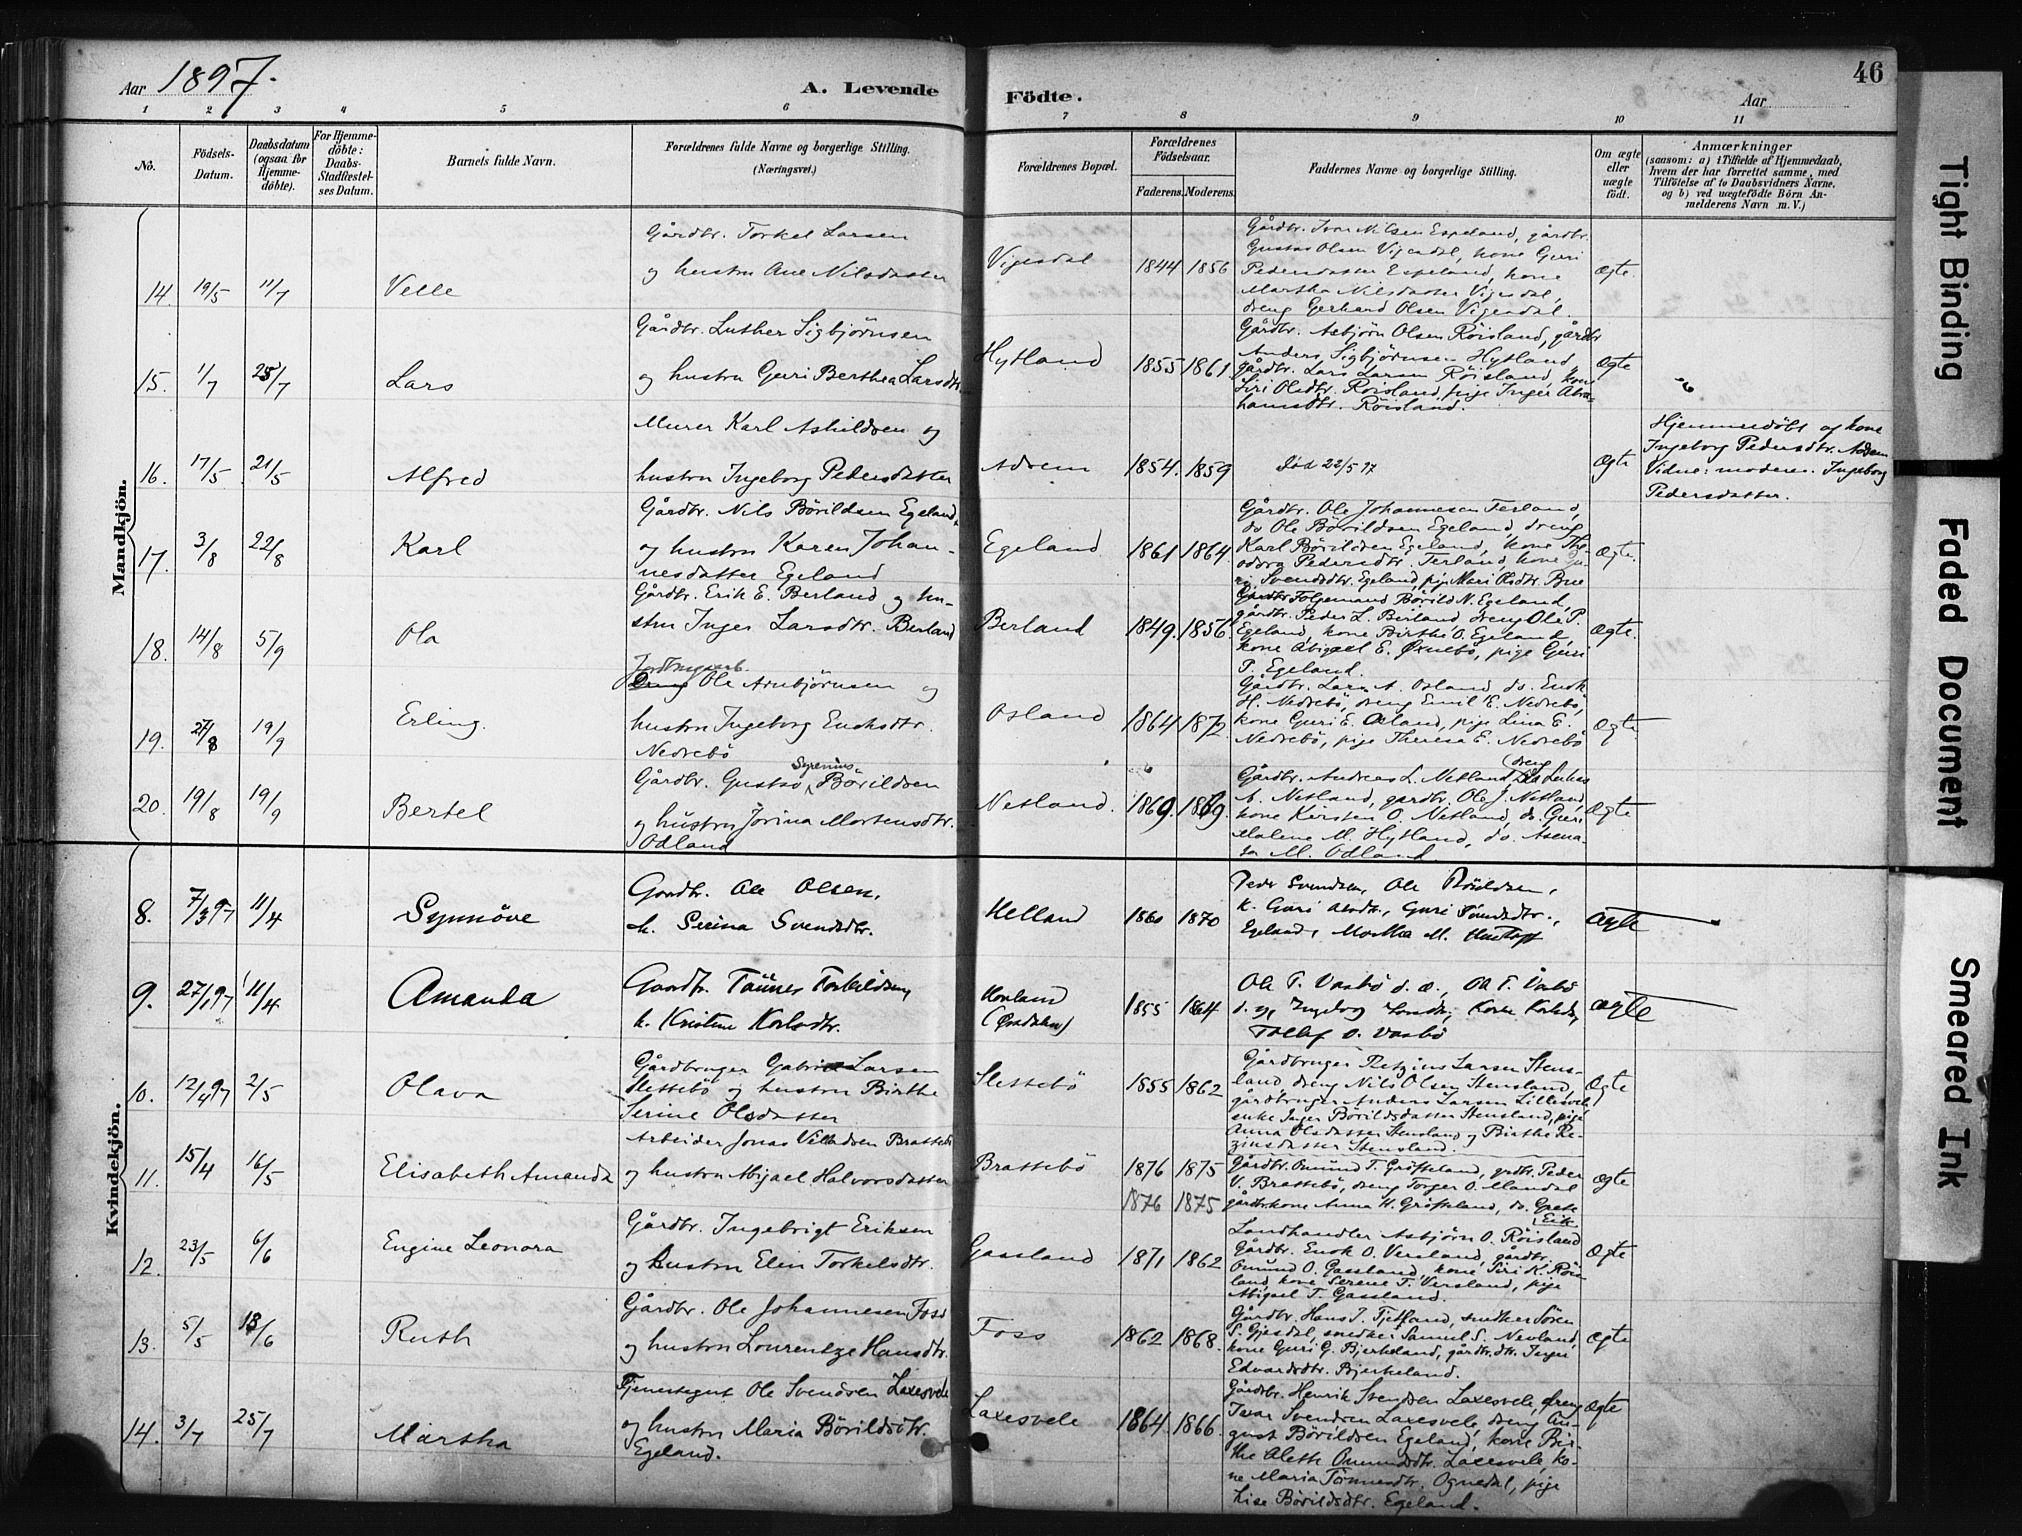 Aar 1897.
A. Levende Födte.
46
Aar
1 2 3 4 5 6 7 8 9 10 11
No.
Födsels-Datum.
Daabsdatum (ogsaa for Hjemme-döbte).
For Hjemme-döbte: Daabs-Stadfæstel-ses Datum.
Barnets fulde Navn.
Forældrenes fulde Navne og borgerlige Stilling. (Næringsvei.)
Forældrenes Bopæl.
Forældrenes Födselsaar.
Faderens. Moderens.
Faddernes Navne og borgerlige Stilling.
Om ægte eller uægte födt.
Anmærkninger
(saasom: a) i Tilfælde af Hjemmedaab,
hvem der har forrettet samme, med
Tilföielse af to Daabsvidners Navne,
og b) ved uægtefödte Börn An-
melderens Navn m. V.)
Mandkjön.
14. 19/5 11/7 Velle
Gårdbr. Torkel Larsen
og hustru Ane Nilsdatter
Vigesdal 1844 1856
Gårdbr. Ivar Nilsen Espeland, gårdbr.
Gustav Olsen Vigesdal, kone Guri
Pedersdatter Espeland, kone
Martha Nilsdatter Vigesdal,
dreng Gerhard Olsen Vigesdal.
Ægte.
15. 1/7 25/7 Lars
Gårdbr. Luther Sigbjörnsen
og hustru Guri Berthea Larsdtr.
Hytland 1855 1861
Gårdbr. Asbjörn Olsen Röisland, gårdbr
Anders Sigbjörnsen Hytland,
gårdbr. Lars Larsen Röisland, kone
Siri Olsdtr. Röisland, pige Inger Abra-
hamsdtr. Röisland.
Ægte
16. 17/5 21/5 Alfred
Murer Karl Askildsen og
hustru Ingeborg Pedersdatter
Adsem 1854. 1859
Död 22/5 97
Ægte
Hjemmedöbt af kone
Ingeborg Pedersdtr. Adsem
Vidne: moderen. Ingeborg
Pedersdatter.
17. 3/8 22/8 Karl
Gårdbr. Nils Börildsen Egeland,
og hustru Karen Johan-
nesdatter Egeland
Egeland 1861 1864
Gårdbr. Ole Johannesen Terland,
do Ole Börildsen Egeland, dreng
Karl Börildsen Egeland, kone The-
odora Pedersdtr. Terland, kone Gu-
ri Svendsdtr. Egeland, pige Mari Olsdtr. Bue
Ægte.
18. 14/8 5/9 Ola
Gårdbr. Erik E. Berland og hu-
stru Inger Larsdtr. Berland
Berland 1849. 1856.
Folgemand Börild N. Egeland,
gårdbr. Peder L. Berland, dreng Ole P.
Egeland, kone Birthe O. Egeland,
kone Abigael E. Ørnebö, pige Guri
P. Egeland.
Ægte.
19. 27/8 19/9 Erling.
Jordbrugsarb.
Ole Arnbjörnsen og
hustru Ingeborg Enoksdtr.
Nedrebö
Osland 1864 1872.
Gårdbr. Lars A. Osland, do. Enok
H. Nedrebö, dreng Emil E. Nedrebö,
kone Guri E. Osland, pige Lina E.
Nedrebö, pige Theresa E. Nedrebö
Ægte.
20. 19/8 19/9 Bertel
Gårdbr. Gustav Syrenius Börildsen
og hustru Jorina Mortensdtr.
Odland
Netland. 1869. 1869.
Gårdbr. Andreas L. Netland, dreng
A. Netland, gardbr. Ole J. Netland,
kone Kersten O. Netland, do. Guri
Malene M. Hytland, do. Asena-
M. Odland.
Ægte
Kvindekjön.
8. 7/3 97 11/4 Synnöve
Gaardbr. Ole Olsen,
h. Serina Svendsdtr.
Helland 1860 1870
Peder Svendsen, Ole Börildsen,
k. Guri Olsdtr., Guri Svendsdtr.,
Egeland, Martha M.
ægte
9. 27/1 97 11/4 Amanda
Gaardbr. Tönnes Torkildsen,
h. Kristine Karlsdtr.
Hovland 1855 1864
Ole T. Vasbö d. æ., Ole T. Vasbö
d. y., Ingeborg
Tollef O. Vasbö
ægte
10. 12/4 97 2/5 Olava
Gårdbruger Gabriel Larsen
Slettebö og hustru Birthe
Serine Olsdatter
Slettebö 1855 1862
Gårdbruger Retzius Larsen Stens-
land, dreng Nils Olsen Stensland,
gårdbruger Anders Larsen Lillesvele
enke Inger Börildsdatter Stensland, pige
Anna Olsdatter Stensland og Birthe Re-
ziusdatter Stensland.
Ægte
11. 15/4 16/5 Elisabeth Amanda
Arbeider Jonas Villadsen Brattebö
og hustru Abigael Halvorsdatter
Brattebö 1876 1875
1876 1875
Gårdbr. Omund T. Gröteland, grdbr. Peder
V. Brattebö, dreng Torger O. Mandal
gårdbr.kone Anna H. Gröteland, do. Grete
Eik.
Ægte
12. 23/5 6/6 Engine Leonora
Gårdbr. Ingebrigt Eriksen
og hustru Elen Torkelsdtr.
Gassland 1871 1862
Landhandler Asbjörn O. Röisland
Gårdbr. Enok O. Versland, gårdbr.
Omund O. Gassland, kone Siri K. Röis-
land, kone Serene T. Versland, pige
Abigael T. Gassland.
Ægte
13. 5/5 13/6 Ruth
Gårdbr. Ole Johannesen Foss
og hustru Lourentze Hansdtr.
Foss 1862 1868.
Gårdbr. Hans J. Tjetland, snedker Sören
S. Gjesdal, snedker Samuel S. Nevland,
kone Guri G. Bjerkeland, gårdbr.dtr. Inger
Edvardsdtr. Bjerkeland.
Ægte
14. 3/7 25/7 Martha
Tjenestegut Ole Svendsen Laxesvele
og hustru Maria Börildsdtr.
Egeland.
Laxesvele 1864. 1866.
Gårdbr. Henrik Svendsen Laxesvele, dreng
Ivar Svendsen Laxesvele, dreng Au-
gust Börildsen Egeland, kone Bir-
the Aleth Omundsdtr. Laxesvele, ko-
ne Maria Tönnesdtr. Ognedal, pige
Lise Börildsdtr. Egeland.
Ægte
Tight Binding
Faded Document
Smeared Ink